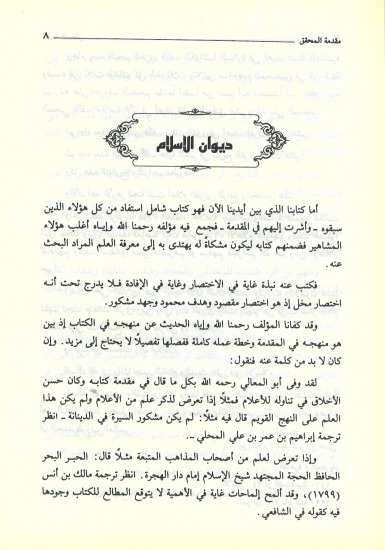 مقدمة المحقق
٨
ديوان الاسلام
أما كتابنا الذي بين أيدينا الآن فهو كتاب شامل استفاد من كل هؤلاء الذين
سبقوه ـ وأشرت إليهم في المقدمة ـ فجمع فيه مؤلفه رحمنا الله وإياه أغلب هؤلاء
المشاهير فضمنهم كتابه ليكون مشكاة له يهتدى به إلى معرفة العلم المراد البحث
عنه.
فكتب عنه نبذة غاية في الاختصار وغاية في الإفادة فلا يدرج تحت أنه
اختصار مخل إذ هو اختصار مقصود وهدف محمود وجهد مشكور.
وقد كفانا المؤلف رحمنا الله وإياه الحديث عن منهجه في الكتاب إذ بين
هو منهجه في المقدمة وخطة عمله كاملة ففصلها تفصيلًا لا يحتاج إلى مزيد. وإن
كان لا بد من كلمة عنه فنقول:
لقد وفى أبو المعالي رحمه الله بكل ما قال في مقدمة كتابه وكان حسن
الأخلاق في تناوله للأعلام فمثلًا إذا تعرض لذكر علم من الأعلام ولم يكن هذا
العلم على النهج القويم قال فيه مثلًا: لم يكن مشكور السيرة في الديانة ـ انظر
ترجمة إبراهيم بن عمر بن علي المحلي ـ.
وإذا تعرض لعلم من أصحاب المذاهب المتبعة مثلًا قال: الحبر البحر
الحافظ الحجة المجتهد شيخ الإسلام إمام دار الهجرة. انظر ترجمة مالك بن أنس
(١٧٩٩)، وقد ألمح إلماحات غاية في الأهمية لا يتوقع المطالع للكتاب وجودها
فيه كقوله في الشافعي.